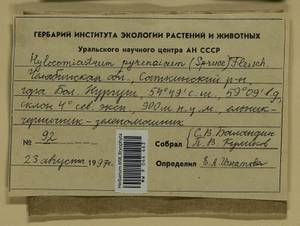 ГЕРБАРИЙ ИНСТИТУТА ЭКОЛОГИИ РАСТЕНИЙ И ЖИВОТНЫХ
Уральского научного центра АН СССР
Hylocomiastrum pyrenaicum (Spruce) Fleisch.
Челябинская обл., Саткинский р-н,
гора Бол. Нургуш, 54°49' с.ш., 59°09' в.д.
склон 4° сев. эксп., 900 м н.у.м., ельник-
чернично-зеленомошник
№ 92
Собрал С.В. Баландин
П.В. Куликов
23 августа 1997 г.
Определил Е.А. Игнатова